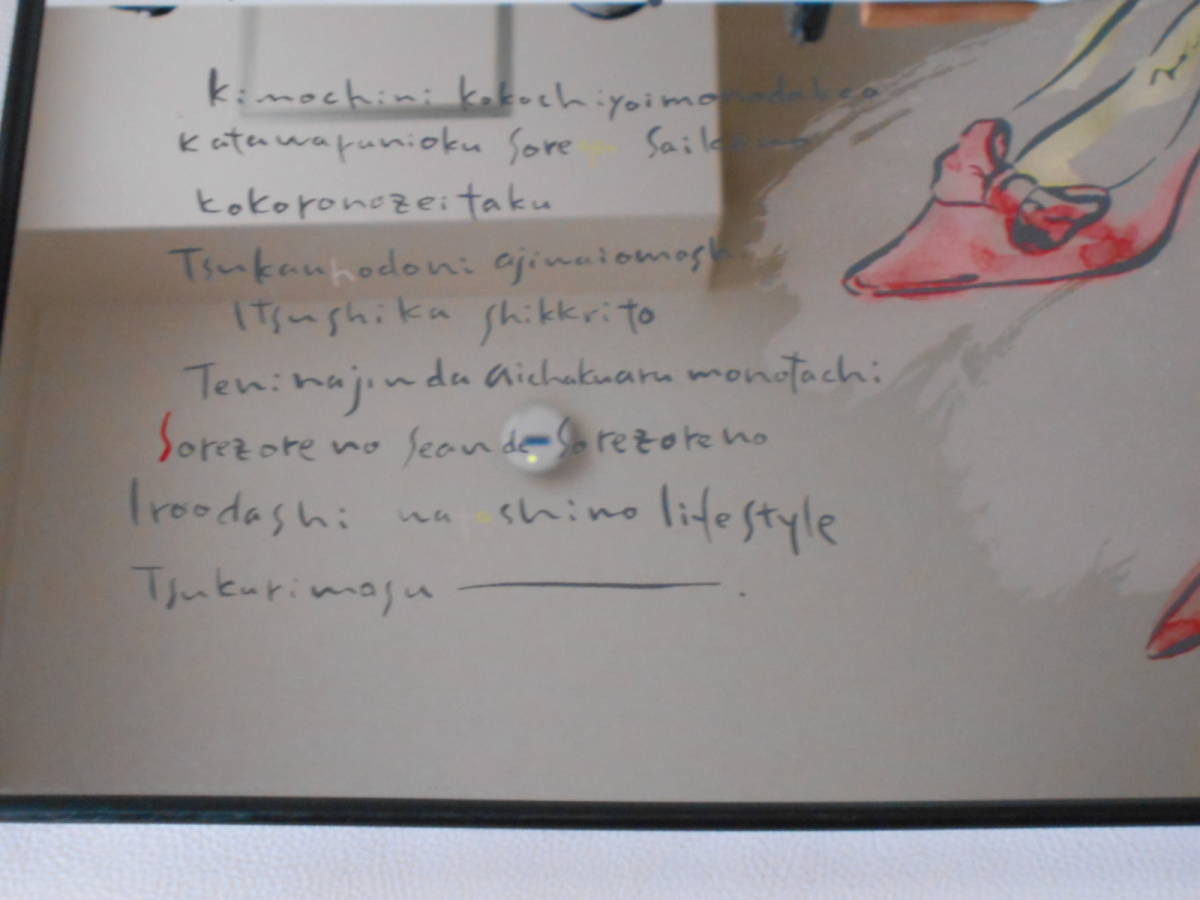 Kimochini kokochiyoimonodakeo
Katawarunioku Sore Saikono
kokoronozeitaku
Tsukauhodoni ajinaiomosh
Itsushika shikkrito
Teninajinda aichakuaru monotachi
Sorezore no Sean de Sorezoreno
Iroodashi na oshino lifestyle
Tsukurimasu